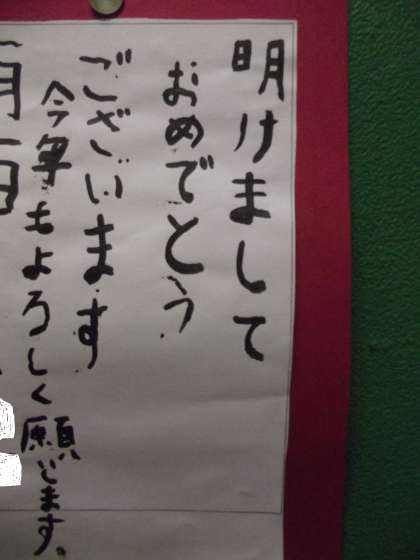 明けまして
おめでとう
ございます
今年もよろしく願います。